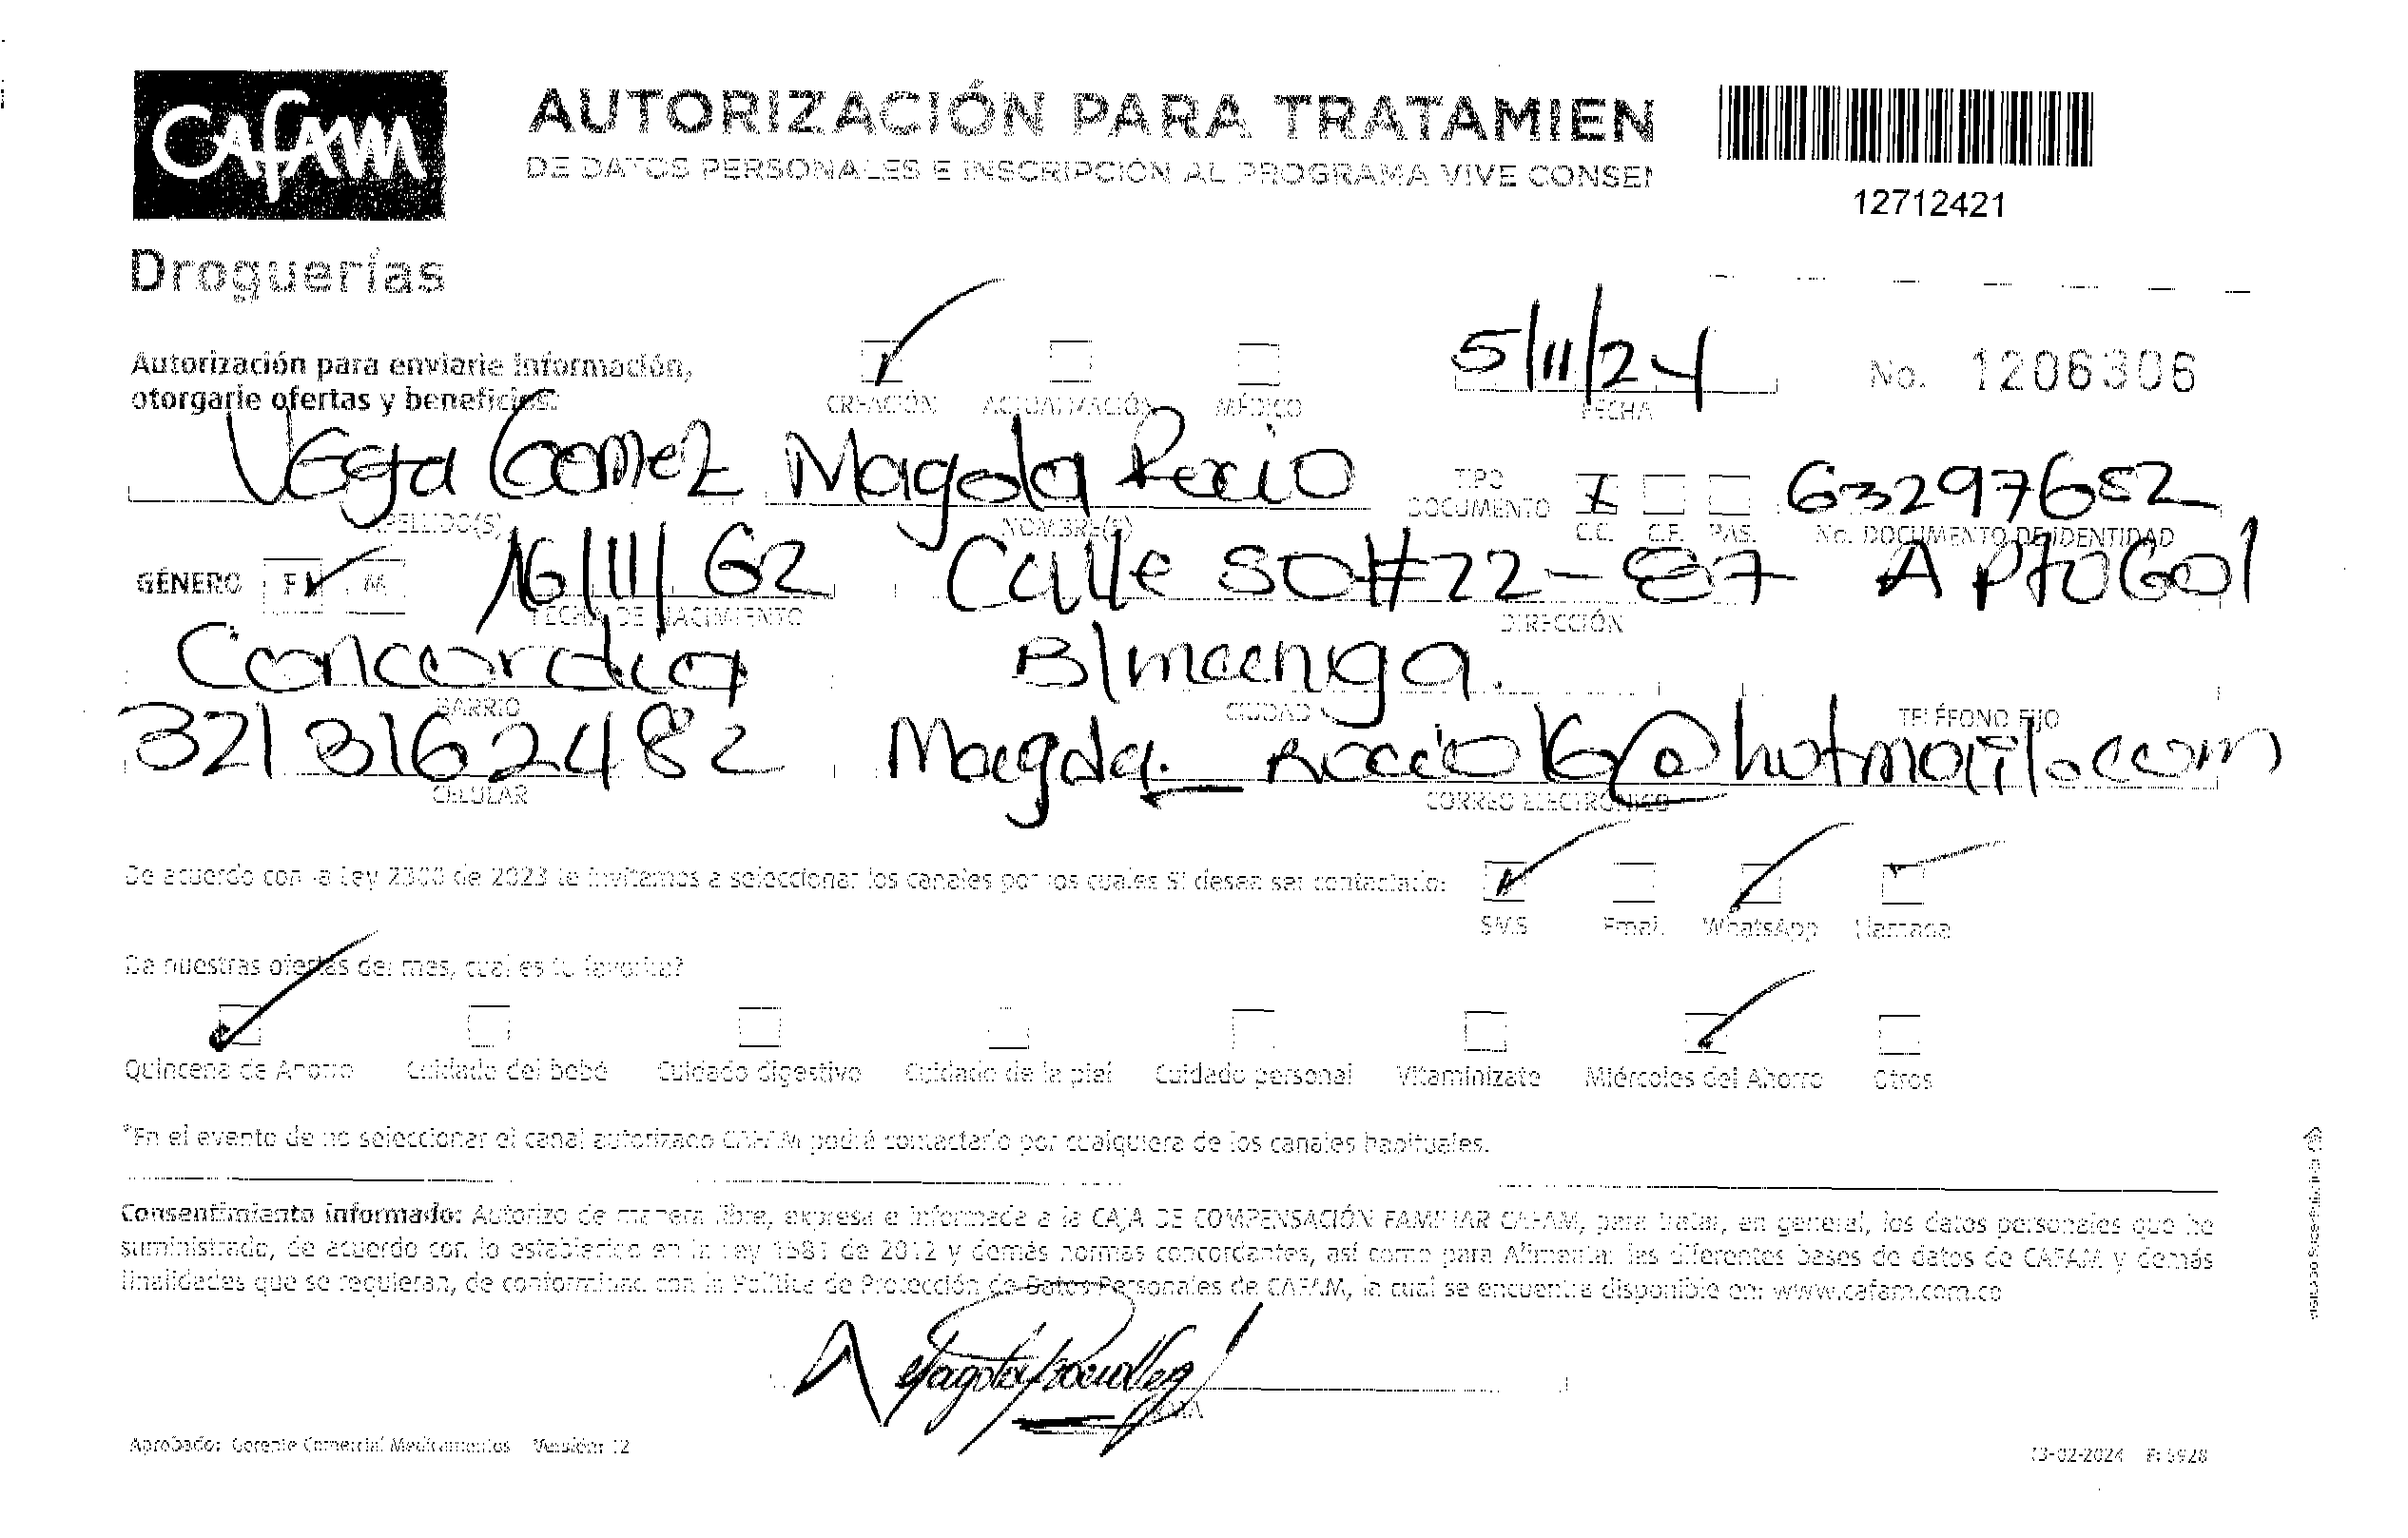 Cafam
AUTORIZACIÓN PARA TRATAMIEN
DE DATOS PERSONALES E INSCRIPCIÓN AL PROGRAMA VIVE CONSEN
12712421
Droguerías
Autorización para enviarle información,
otorgarle ofertas y beneficios:
CREACIÓN ACTUALIZACIÓN MÉDICO
5/11/24
FECHA
No. 1206306
Vega Gomez Magda Rocio
APELLIDO(S) NOMBRE(S)
TIPO DOCUMENTO X C.C. C.E. PAS.
63297652
No. DOCUMENTO DE IDENTIDAD
GÉNERO F M 16/11/62 Calle 50#22-87 Apto 601
FECHA DE NACIMIENTO DIRECCIÓN
Concordia B/manga.
BARRIO CIUDAD TELÉFONO FIJO
3213162482 Magda._Rocio16@hotmail.com
CELULAR CORREO ELECTRÓNICO
De acuerdo con la Ley 2300 de 2023 te invitamos a seleccionar los canales por los cuales SI desea ser contactado:
SMS Email WhatsApp Llamada
De nuestras ofertas del mes, cual es tu favorita?
Quincena de Ahorro Cuidado del bebé Cuidado digestivo Cuidado de la piel Cuidado personal Vitaminízate Miércoles del Ahorro Otros
*En el evento de no seleccionar el canal autorizado CAFAM podrá contactarlo por cualquiera de los canales habituales.
Consentimiento informado: Autorizo de manera libre, expresa e informada a la CAJA DE COMPENSACIÓN FAMILIAR CAFAM, para tratar, en general, los datos personales que he
suministrado, de acuerdo con lo establecido en la Ley 1581 de 2012 y demás normas concordantes, así como para Alimentar las diferentes bases de datos de CAFAM y demás
finalidades que se requieran, de conformidad con la Política de Protección de Datos Personales de CAFAM, la cual se encuentra disponible en: www.cafam.com.co
FIRMA
Aprobado: Gerente Comercial Medicamentos Versión: 12
13-02-2024 F: 5928